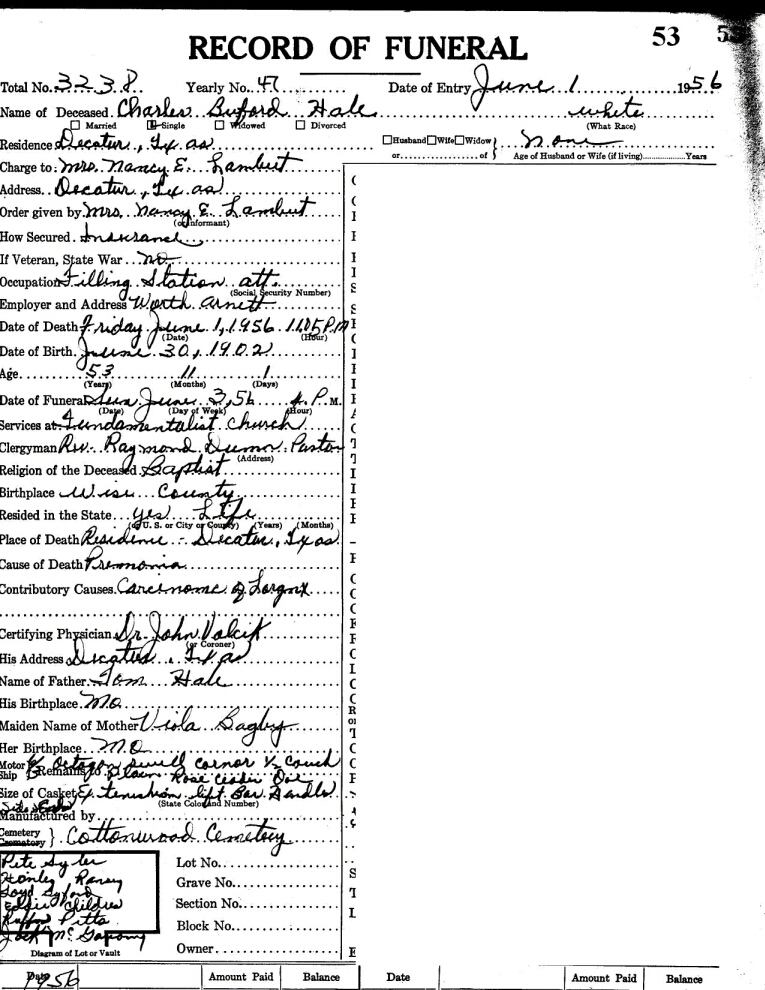 53
RECORD OF FUNERAL
Total No. 3238 Yearly No. 47 Date of Entry June 1 1956
Name of Deceased Charles Buford Hale white
Married Single Widowed Divorced (What Race)
Residence Decatur, Texas Husband Wife Widow } none
or of } Age of Husband or Wife (if living) Years
Charge to: Mrs. Nancy E. Lambert
Address Decatur, Texas
Order given by Mrs. Nancy E. Lambert
(or informant)
How Secured Insurance
If Veteran, State War no
Occupation Filling Station att.
(Social Security Number)
Employer and Address Worth Arnett
Date of Death Friday June 1, 1956 11:05 P.M
(Date) (Hour)
Date of Birth June 30, 1902
Age 53 11 1
(Years) (Months) (Days)
Date of Funeral Sun June 3, 56 4 P. M.
(Date) (Day of Week) (Hour)
Services at Fundamentalist Church
Clergyman Rev. Raymond Pastor
(Address)
Religion of the Deceased Baptist
Birthplace Wise County
Resided in the State yes Life
(or U. S. or City or County) (Years) (Months)
Place of Death Residence - Decatur, Texas
Cause of Death Pnemonia
Contributory Causes Carcinome of Largnx
Certifying Physician Dr. John Valcik
(or Coroner)
His Address Decatur, Texas
Name of Father Tom Hale
His Birthplace Mo
Maiden Name of Mother Viola Bagby
Her Birthplace Mo
Motor Octagon cornor 1/2 Couch
Ship } Remains to Plain Rose
Size of Casket Extenshion lift Bar Handle
(State Color and Number)
Manufactured by
Cemetery } Cottonwood Cemetery
Crematory
Pete Lot No.
Grave No.
Loyd Section No.
Eddie Childres
Pitts Block No.
Jack
Diagram of Lot or Vault Owner
Date 1956 Amount Paid Balance Date Amount Paid Balance